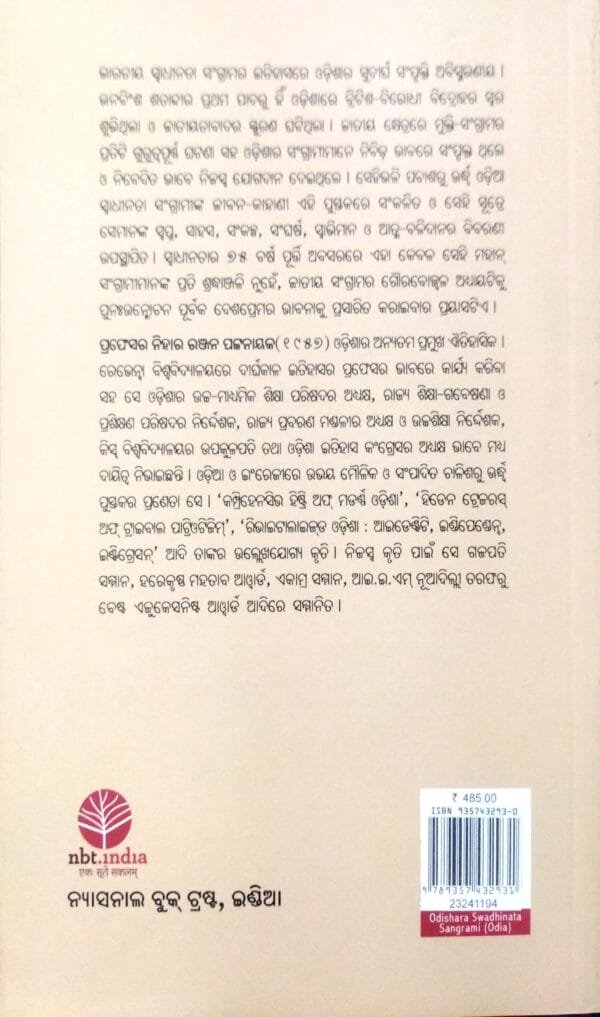 ଭାରତୀୟ ସ୍ୱାଧୀନତା ସଂଗ୍ରାମର ଇତିହାସରେ ଓଡ଼ିଶାର ସୁଦୀର୍ଘ ସଂପୃକ୍ତି ଅବିସ୍ମରଣୀୟ ।
ଊନବିଂଶ ଶତାବ୍ଦୀର ପ୍ରଥମ ପାଦରୁ ହିଁ ଓଡ଼ିଶାରେ ବ୍ରିଟିଶ-ବିରୋଧୀ ବିଦ୍ରୋହର ସ୍ୱର
ଶୁଭିଥିଲା ଓ ଜାତୀୟତାବାଦର ସ୍ଫୁରଣ ଘଟିଥିଲା । ଜାତୀୟ କ୍ଷେତ୍ରରେ ମୁକ୍ତି-ସଂଗ୍ରାମର
ପ୍ରତିଟି ଗୁରୁତ୍ୱପୂର୍ଣ୍ଣ ଘଟଣା ସହ ଓଡ଼ିଶାର ସଂଗ୍ରାମୀମାନେ ନିବିଡ଼ ଭାବରେ ସଂପୃକ୍ତ ଥିଲେ
ଓ ନିବେଦିତ ଭାବେ ନିଜସ୍ୱ ଯୋଗଦାନ ଦେଇଥିଲେ । ସେହିଭଳି ପଚାଶରୁ ଊର୍ଦ୍ଧ୍ୱ ଓଡ଼ିଆ
ସ୍ୱାଧୀନତା ସଂଗ୍ରାମୀଙ୍କ ଜୀବନ-କାହାଣୀ ଏହି ପୁସ୍ତକରେ ସଂକଳିତ ଓ ସେହି ସୂତ୍ରେ
ସେମାନଙ୍କ ସ୍ୱପ୍ନ, ସାହସ, ସଂକଳ୍ପ, ସଂଘର୍ଷ, ସ୍ୱାଭିମାନ ଓ ଆତ୍ମ-ବଳିଦାନର ବିବରଣୀ
ଉପସ୍ଥାପିତ । ସ୍ୱାଧୀନତାର ୭୫ ବର୍ଷ ପୂର୍ତ୍ତି ଅବସରରେ ଏହା କେବଳ ସେହି ମହାନ୍
ସଂଗ୍ରାମୀମାନଙ୍କ ପ୍ରତି ଶ୍ରଦ୍ଧାଞ୍ଜଳି ନୁହେଁ, ଜାତୀୟ ସଂଗ୍ରାମର ଗୌରବୋଜ୍ଜ୍ୱଳ ଅଧ୍ୟାୟଟିକୁ
ପୁନଃଉନ୍ମୋଚନ ପୂର୍ବକ ଦେଶପ୍ରେମର ଭାବନାକୁ ପ୍ରସାରିତ କରାଇବାର ପ୍ରୟାସଟିଏ ।
ପ୍ରଫେସର ନିହାର ରଞ୍ଜନ ପଟ୍ଟନାୟକ(୧୯୫୭) ଓଡ଼ିଶାର ଅନ୍ୟତମ ପ୍ରମୁଖ ଐତିହାସିକ ।
ରେଭେନ୍ସା ବିଶ୍ୱବିଦ୍ୟାଳୟରେ ଦୀର୍ଘକାଳ ଇତିହାସର ପ୍ରଫେସର ଭାବରେ କାର୍ଯ୍ୟ କରିବା
ସହ ସେ ଓଡ଼ିଶାର ଉଚ୍ଚ-ମାଧ୍ୟମିକ ଶିକ୍ଷା ପରିଷଦର ଅଧ୍ୟକ୍ଷ, ରାଜ୍ୟ ଶିକ୍ଷା-ଗବେଷଣା ଓ
ପ୍ରଶିକ୍ଷଣ ପରିଷଦର ନିର୍ଦ୍ଦେଶକ, ରାଜ୍ୟ ପ୍ରବରଣ ମଣ୍ଡଳୀର ଅଧ୍ୟକ୍ଷ ଓ ଉଚ୍ଚଶିକ୍ଷା ନିର୍ଦ୍ଦେଶକ,
କିସ୍ ବିଶ୍ୱବିଦ୍ୟାଳୟର ଉପକୁଳପତି ତଥା ଓଡ଼ିଶା ଇତିହାସ କଂଗ୍ରେସର ଅଧ୍ୟକ୍ଷ ଭାବେ ମଧ୍ୟ
ଦାୟିତ୍ୱ ନିଭାଇଛନ୍ତି । ଓଡ଼ିଆ ଓ ଇଂରେଜୀରେ ଉଭୟ ମୌଳିକ ଓ ସଂପାଦିତ ଚାଳିଶରୁ ଊର୍ଦ୍ଧ୍ୱ
ପୁସ୍ତକର ପ୍ରଣେତା ସେ । ‘କମ୍ପ୍ରିହେନସିଭ ହିଷ୍ଟ୍ରି ଅଫ୍ ମଡର୍ଣ୍ଣ ଓଡ଼ିଶା’, ‘ହିଡେନ ଟ୍ରେଜରସ୍
ଅଫ୍ ଟ୍ରାଇବାଲ ପାଟ୍ରିଓଟିଜିମ୍’, ‘ରିଭାଇଟାଲାଇଜ୍‌ଡ ଓଡ଼ିଶା : ଆଇଡେଣ୍ଟିଟି, ଇଣ୍ଡିପେଣ୍ଡେନ୍ସ,
ଇଣ୍ଟିଗ୍ରେସନ୍’ ଆଦି ତାଙ୍କର ଉଲ୍ଲେଖଯୋଗ୍ୟ କୃତି । ନିଜସ୍ୱ କୃତି ପାଇଁ ସେ ଗଜପତି
ସମ୍ମାନ, ହରେକୃଷ୍ଣ ମହତାବ ଆଓ୍ୱାର୍ଡ, ଏକାମ୍ର ସମ୍ମାନ, ଆଇ.ଇ.ଏମ୍ ନୂଆଦିଲ୍ଲୀ ତରଫରୁ
ବେଷ୍ଟ ଏଜୁକେସନିଷ୍ଟ ଆଓ୍ୱାର୍ଡ ଆଦିରେ ସମ୍ମାନିତ ।
nbt.india
एकः सूते सकलम्
ନ୍ୟାସନାଲ ବୁକ୍ ଟ୍ରଷ୍ଟ, ଇଣ୍ଡିଆ
₹ 485.00
ISBN 935743293-0
9 789357 432931
23241194
Odishara Swadhinata
Sangrami (Odia)